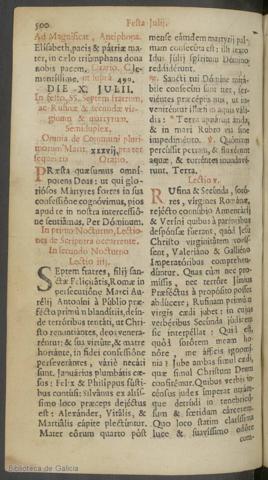 500 Festa Julij.
Ad Magnificat, Antiphona.
Elisabeth, pacis & pátriæ ma-
ter, in cælo triumphans dona
nobis pacem. Oratio. Cle-
mentíssime. ut suprà 499.
DIE X. JULII.
In festo SS. Septem fratrum,
ac Rufinæ & secundæ vir-
ginum & martyrum.
Semiduplex.
Omnia de Communi pluri-
morum Mart. xxxvij. præter
sequentia Oratio.
PRæsta quæsumus omní-
potens Deus: ut qui glo-
riósos Mártyres fortes in sua
confessióne cognóvimus, pios
apud te in nostra intercessió-
ne sentiámus. Per Dóminum.
In primo Nocturno, Lectio-
nes de Scriptura occurrente.
In secundo Nocturno
Lectio iiij.
SEptem fratres, fílij san-
ctæ Felicitátis, Romæ in
persecutióne Marci Au-
rélij Antoníni à Públio præ-
fécto primùm blandítijs, dein-
de terróribus tentáti, ut Chri-
sto renuntiántes, deos venera-
réntur: & sua virtúte, & matre
hortánte, in fídei confessióne
perseverántes, váriè necáti
sunt. Januárius plumbátis cæ-
sus: Felix & Philíppus fústi-
bus contúsi: Silvánus ex altís-
simo loco præceps dejéctus
est: Alexánder, Vitális, &
Martiális cápite plectúntur.
Mater eórum quarto pòst
mense eámdem martýrij pal-
mam consecúta est: illi sexto
Idus Júlij spíritum Dómino
reddidérunt.
Sancti tui Dómine mirá-
bile consecúti sunt iter, ser-
viéntes præcéptis tuis, ut in-
veniréntur illǽsi in aquis váli-
dis: * Terra appáruit árida,
& in mari Rubro via sine
impediménto. ℣. Quóniam
percússit petram, & fluxérunt
aquæ, & torréntes inundavé-
runt. Terra.
Lectio v.
RUfína & Secúnda, soró-
res, vírgines Románæ,
rejécto connúbio Armentárij
& Veríni quibus à paréntibus
desponsæ fúerant, quòd Jesu
Christo virginitátem vovís-
sent, Valeriáno & Galliéno
Imperatóribus comprehen-
dúntur. Quas cùm nec pro-
míssis, nec terróre Június
Præféctus à propósito posset
abdúcere; Rufínam primùm
virgis cædi jubet: in cujus
verbéribus Secúnda júdicem
sic interpéllat: Quid est,
quòd sorórem meam ho-
nóre, me affícis ignomí-
nia? Jube ambas simul cædi,
quæ simul Christum Deum
confitémur. Quibus verbis in-
cénsus judex utrámque
detrúdi in tenebricó-
sum & fœtidum cárcerem.
Quo loco statim claríssima
luce & suavíssimo odóre
com-
Biblioteca de Galicia